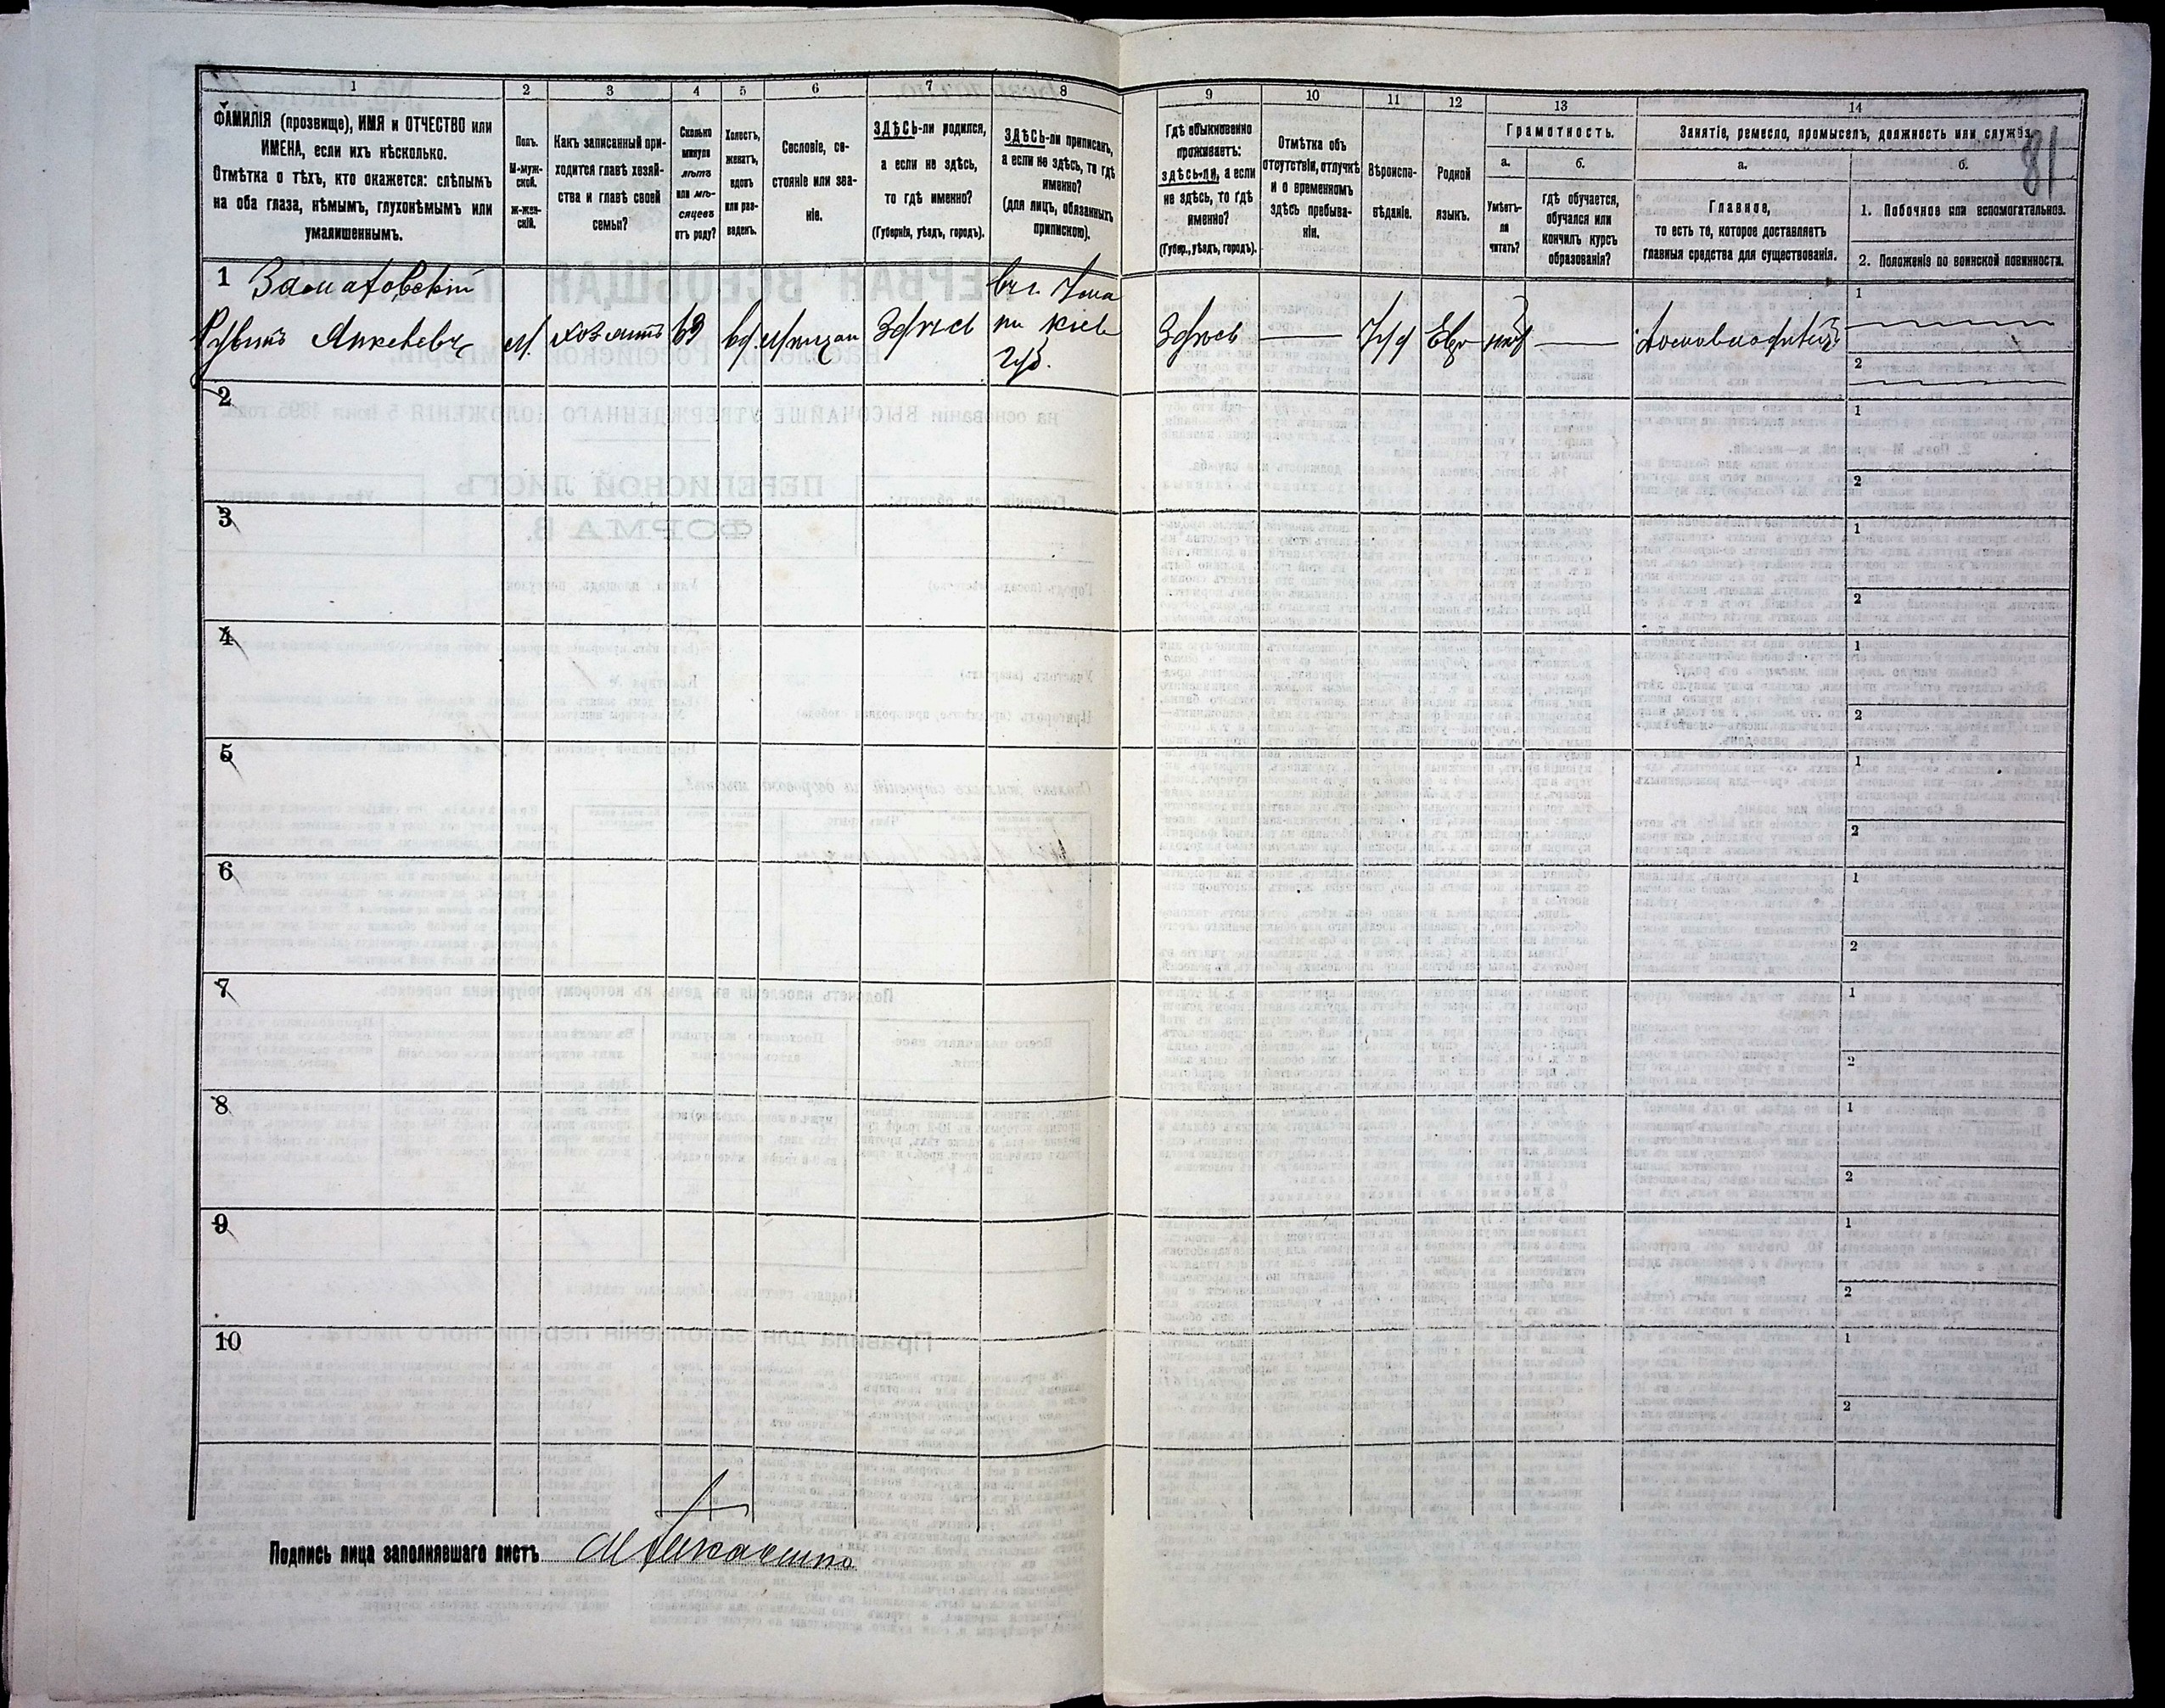 1 2 3 4 5 6 7 8 9 10 11 12 13 14
ФАМИЛІЯ (прозвище), ИМЯ и ОТЧЕСТВО или
ИМЕНА, если ихъ нѣсколько.
Отмѣтка о тѣхъ, кто окажется: слѣпымъ
на оба глаза, нѣмымъ, глухонѣмымъ или
умалишеннымъ.
Полъ.
М-муж-
ской.
ж-жен-
скій.
Какъ записанный при-
ходится главѣ хозяй-
ства и главѣ своей
семьи?
Сколько
минуло
лѣтъ
или мѣ-
сяцевъ
отъ роду?
Холостъ,
женатъ,
вдовъ
или раз-
веденъ.
Сословіе, со-
стояніе или зва-
ніе.
ЗДѢСЬ-ли родился,
а если не здѣсь,
то гдѣ именно?
(Губернія, уѣздъ, городъ).
ЗДѢСЬ-ли приписанъ,
а если не здѣсь, то гдѣ
именно?
(для лицъ, обязанныхъ
припискою).
Гдѣ обыкновенно
проживаетъ:
здѣсь-ли, а если
не здѣсь, то гдѣ
именно?
(Губер., уѣздъ, городъ).
Отмѣтка объ
отсутствіи, отлучкѣ
и о временномъ
здѣсь пребыва-
ніи.
Вѣроиспо-
вѣданіе.
Родной
языкъ.
Грамотность.
а.
Умѣетъ-
ли
читать?
б.
гдѣ обучается,
обучался или
кончилъ курсъ
образованія?
Занятіе, ремесло, промыселъ, должность или служба.
81
а.
Главное,
то есть то, которое доставляетъ
главныя средства для существованія.
б.
1. Побочное или вспомогательное.
2. Положеніе по воинской повинности.
1
Вдов. вд.
М. 69
Здѣсь
Кіев
губ.
Здѣсь — Іуд Евр нѣт —
1
2
2
1
2
3
1
2
4
1
2
5
1
2
6
1
2
7
1
2
8
1
2
9
1
2
10
1
2
Подпись лица заполнявшаго листъ